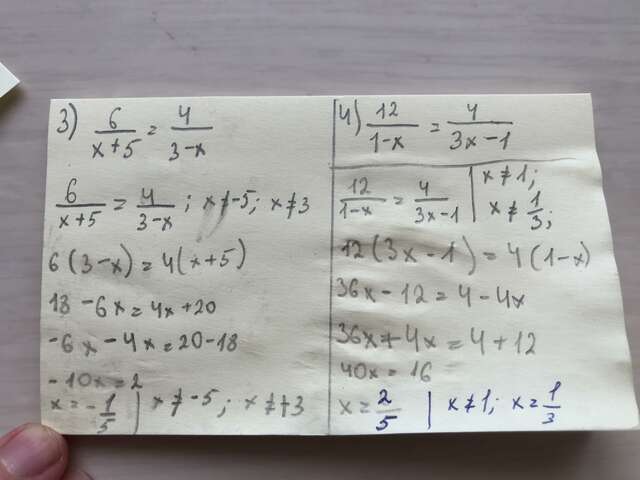 3) 6/(x+5) = 4/(3-x)
6/(x+5) = 4/(3-x); x≠-5; x≠3
6(3-x)=4(x+5)
18-6x=4x+20
-6x-4x=20-18
-10x=2
x=-1/5 | x≠-5; x≠+3
4) 12/(1-x) = 4/(3x-1)
12/(1-x) = 4/(3x-1) | x≠1;
x≠1/3;
12(3x-1)=4(1-x)
36x-12=4-4x
36x+4x=4+12
40x=16
x=2/5 | x≠1; x=1/3